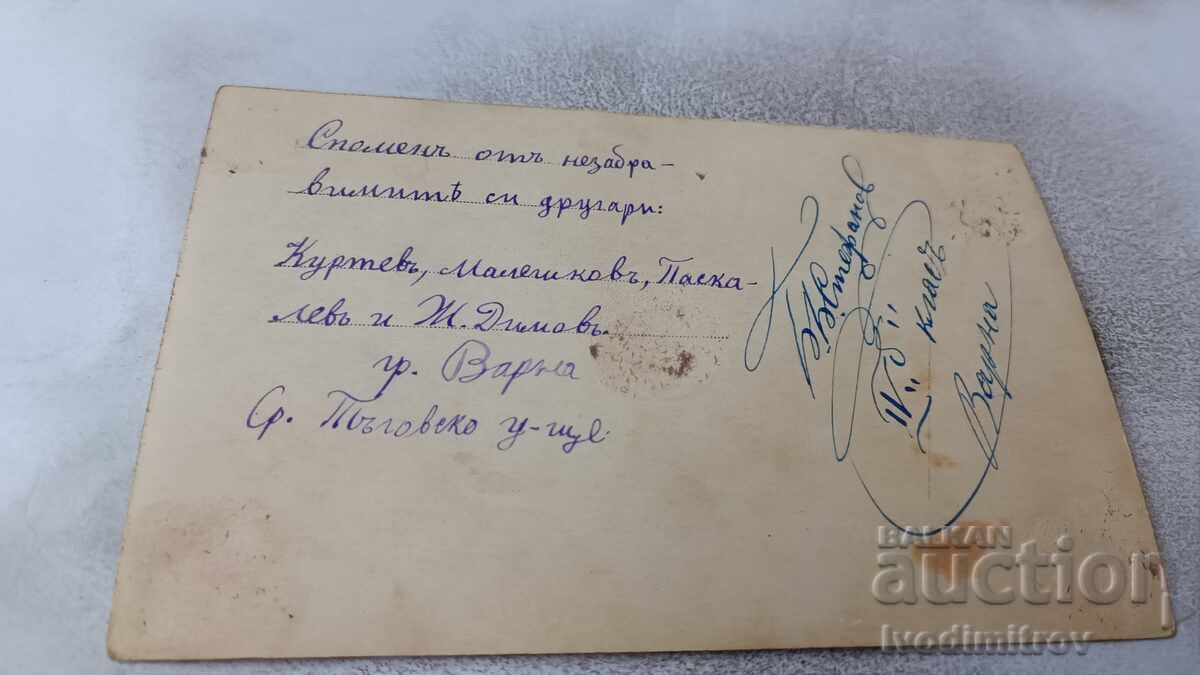 Споменъ отъ незабра-
вимитѣ си другари:
Куртевъ, Малешковъ, Паска-
левъ и Ж. Димовъ.
гр. Варна
Ср. Търговско у-ще
Стефанов
IV "б" класъ
Варна
BALKAN
auction
Ivodimitrov